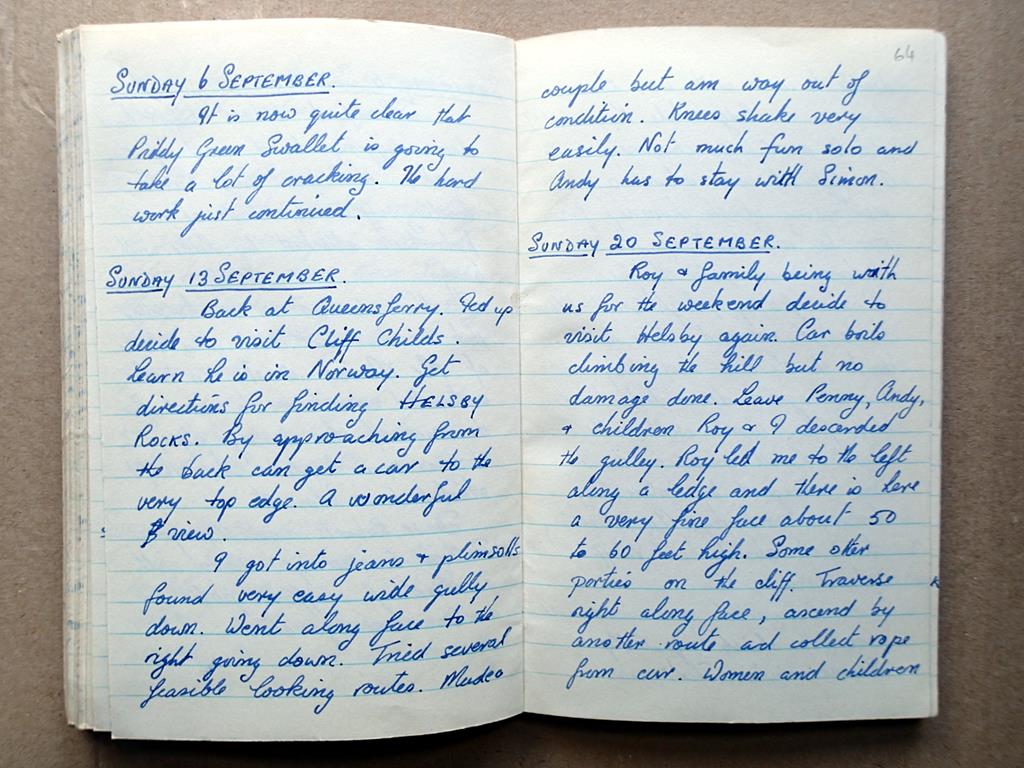 SUNDAY 6 SEPTEMBER.
It is now quite clear that
Priddy Green Swallet is going to
take a lot of cracking. The hard
work just continued.
SUNDAY 13 SEPTEMBER.
Back at Queensferry. Fed up
decide to visit Cliff Childs.
Learn he is in Norway. Get
directions for finding HELSBY
ROCKS. By approaching from
the back can get a car to the
very top edge. A wonderful
view.
I got into jeans + plimsolls
found very easy wide gully
down. Went along face to the
right going down. Tried several
feasible looking routes. Made a
64
couple but am way out of
condition. Knees shake very
easily. Not much fun solo and
Andy has to stay with Simon.
SUNDAY 20 SEPTEMBER.
Roy & family being with
us for the weekend decide to
visit Helsby again. Car boils
climbing the hill but no
damage done. Leave Penny, Andy,
+ children Roy & I descended
the gulley. Roy led me to the left
along a ledge and there is here
a very fine face about 50
to 60 feet high. Some other
parties on the cliff. Traverse
right along face, ascend by
another route and collect rope
from car. Women and children